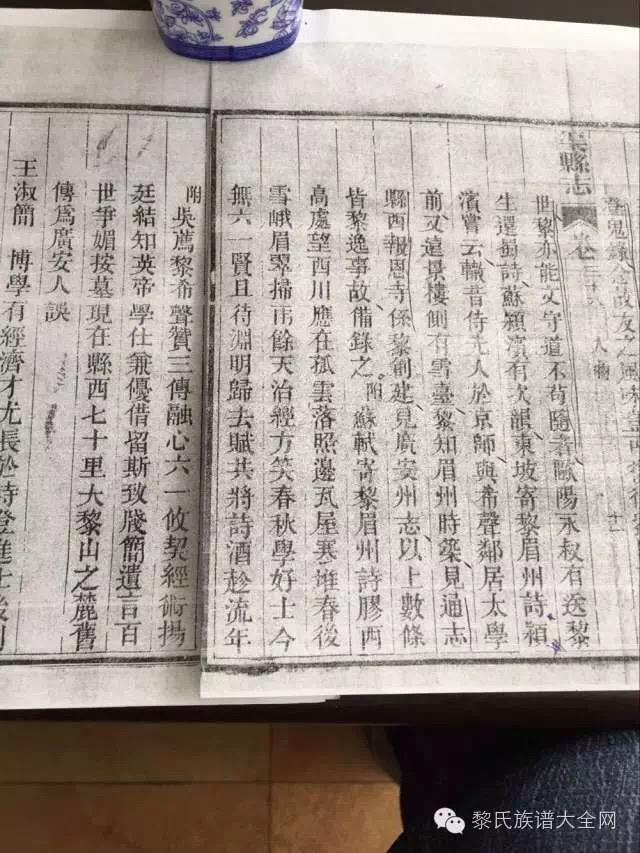 縣志
卷三十六 人物
世黎亦能文守道不苟隨者歐陽永叔有送黎
生還蜀詩蘇潁濱有次韻東坡寄黎眉州詩潁
濱嘗云轍昔侍先人於京師與希聲鄰居太學
前又遠景樓側有雪臺黎知眉州時築見通志
縣西報恩寺係黎創建見廣安州志以上數條
皆黎逸事故備錄之附蘇軾寄黎眉州詩膠西
高處望西川應在孤雲落照邊瓦屋寒堆春後
雪峨眉翠掃雨餘天治經方笑春秋學好士今
無六一賢且待淵明歸去賦共將詩酒趁流年
附吳薦黎希聲贊三傳融心六一攸契經術揚
廷結知英帝學仕兼優借留斯致牋簡遺言百
世爭媚按墓現在縣西七十里大黎山之麓舊
傳為廣安人誤
王淑簡 博學有經濟才尤長於詩登進士
黎氏族谱大全网